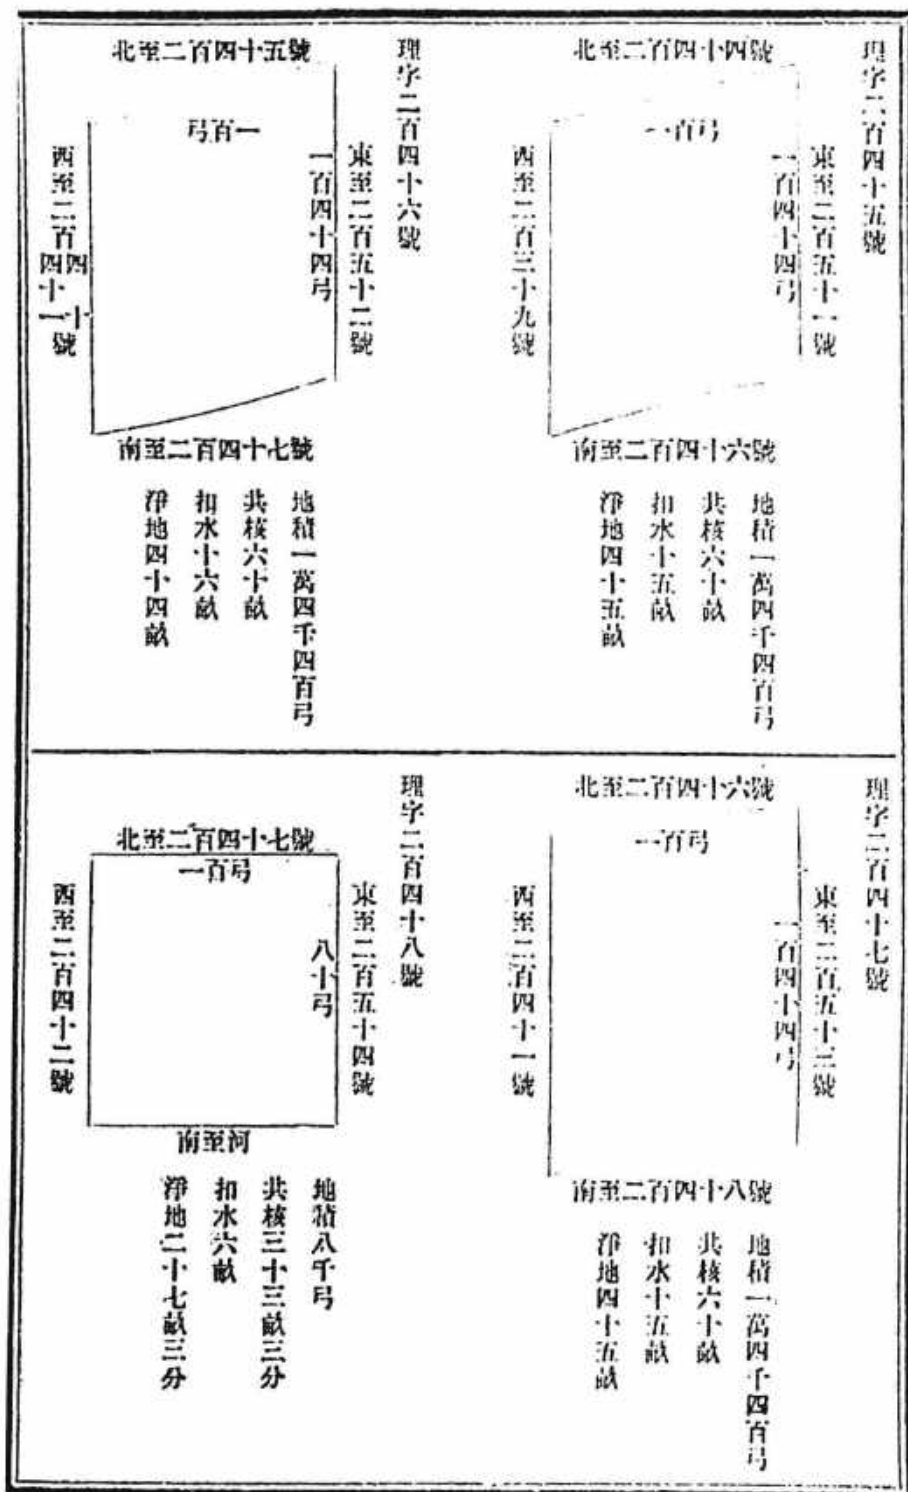 理字二百四十五號
北至二百四十四號
一百弓
一百四十四弓
東至二百五十一號
西至二百三十九號
南至二百四十六號
地積一萬四千四百弓
共核六十畝
扣水十五畝
淨地四十五畝
理字二百四十六號
北至二百四十五號
一百弓
一百四十四弓
東至二百五十二號
西至二百四十四十一號
南至二百四十七號
地積一萬四千四百弓
共核六十畝
扣水十六畝
淨地四十四畝
理字二百四十七號
北至二百四十六號
一百弓
一百四十四弓
東至二百五十三號
西至二百四十一號
南至二百四十八號
地積一萬四千四百弓
共核六十畝
扣水十五畝
淨地四十五畝
理字二百四十八號
北至二百四十七號
一百弓
八十弓
東至二百五十四號
西至二百四十二號
南至河
地積八千弓
共核三十三畝三分
扣水六畝
淨地二十七畝三分